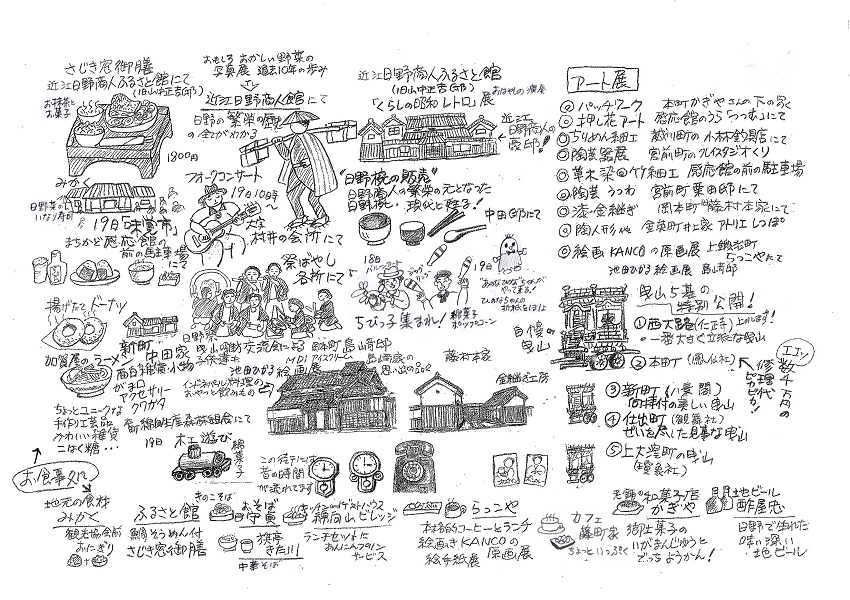 さじき窓御膳
近江日野商人ふるさと館にて
(旧山中正吉邸)
お抹茶と
お菓子
1800円
おもしろ おかしい野菜の
写真展 過去10年の歩み
近江日野商人館にて
日野の繁栄の
の全てがわかる
近江日野商人ふるさと館
(旧山中正吉邸)
「くらしの昭和レトロ」展
近江
日野商人の
豪邸!
みかく
日野菜の
いなり寿司
19日「味覚市」
まちかど感応館の
前の駐車場
にて
フォークコンサート
19日10時
〜
大字
村井の会所にて
"日野椀の販売"
日野商人の繁栄の元となった
日野椀・現代と甦る!
中田邸にて
祭ばやし
各所にて
18日
19日
ちびっ子集まれ!
綿菓子
ポップコーン
揚げたて ドーナツ
加賀屋のラーメン
新町
中田家
面白雑価小物
がま口
アクセサリー
クワガタ
ちょっとユニークな
手作り工芸品
かわいい雑貨
こなく糖…
日野祭
曳山囃子交流会による
池田ひかる 絵画展
本町 島崎邸
MDIアイスクリーム
島崎家の
思い出の品
インドネパール料理の
おやつと飲みもの
藤村本家
金継ぎ工房
自慢の
曳山
19日
木工遊び
綿菓子
この街だけは
昔の時間が
が流れてます
アート展
◎ パッチワーク 本町かぎやさんの下の方
◎ 押し花アート 感応館のうら「つつむ」にて
◎ ちりめん細工 越川町の小林釣具店にて
◎ 陶芸器展 宮前町のクレイスタジオくり
◎ 草木染 竹細工 感応館の前の駐車場
◎ 陶芸 うつわ 宮前町粟田邸にて
◎ 漆・金継ぎ 岡本町"藤村本家にて
◎ 陶人形他 金英町井上家 アトリエしっぽ
◎ 絵画 KANCOの原画展 上鍛冶町
らっこやにて
池田ひかる 絵画展 島崎邸
曳山5基の
特別公開!
① 西大路(仁正寺)上れます!
一番大きく立派な曳山
② 本町(鳳仙社)
③ 新町(八景閣)
④ 仕出町(観翁社)
ぜいを尽した見事な曳山
⑤ 上大窪町の曳山
エエッ
数千万円の
修理代
お食事処
地元の食材
みかく
観光協会前
おにぎり
ふるさと館
鯛そうめん付
さじき窓御膳
きのこそば
おそば
旗亭
きた川
中華そば
キッチンandゲストハウス
綿向山ビレッジ
ランチセットに
あんにんプリン
サービス
らっこや
本格的コーヒーとランチ
絵画きKANCOの
絵手紙展
原画展
カフェ
藤町家
ちょっといっぷく
老舗の和菓子店
かぎや
郷土菓子の
いがまんじゅうと
でっちようかん!
地ビール
酢屋忠
日野で生れた
味い深い
地ビール